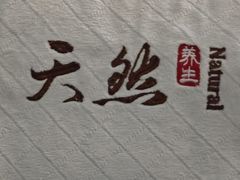 天然
养生
Natural